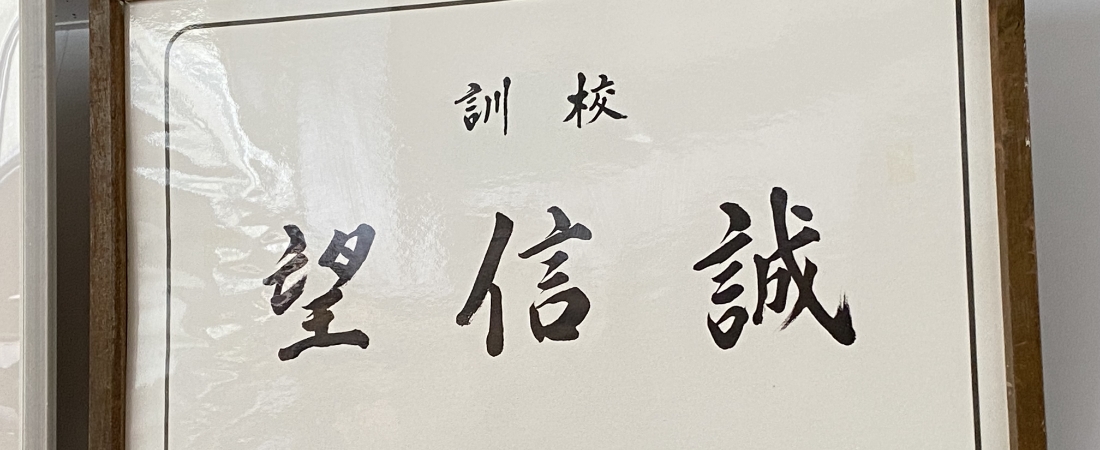 校訓
誠信望